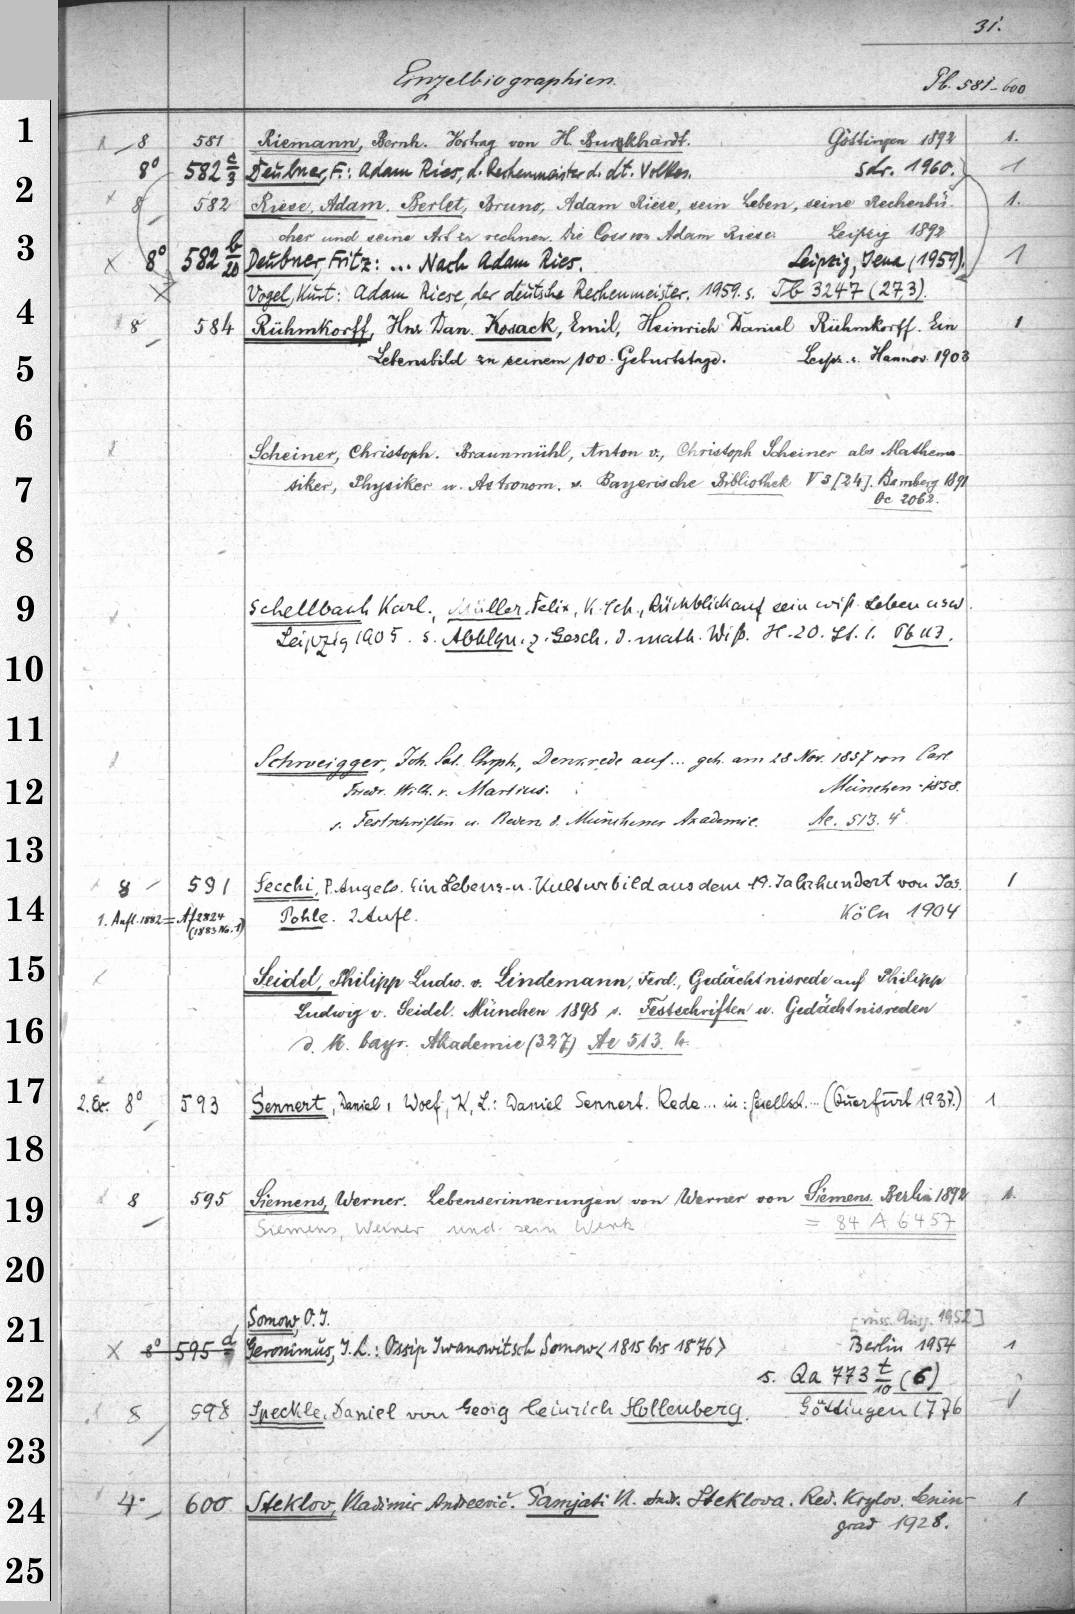 31.
Einzelbiographien.
Tb. 581-600
1 8 581 Riemann, Bernh. Vortrag von H. Burkhardt. Göttingen 1892 1.
2 8° 582 a/3 Deubner, F.: Adam Ries, d. Rechenmeister d. dt. Volkes. Sdr. 1960. 1
8 582 Riese, Adam. Berlet, Bruno, Adam Riese, sein Leben, seine Rechenbü-
3 cher und seine Art zu rechnen. Die Coss von Adam Riese. Leipzig 1892 1.
X 8° 582 b/20 Deubner, Fritz: ... Nach Adam Ries. Leipzig, Jena (1959). 1
4 X Vogel, Kurt: Adam Riese, der deutsche Rechenmeister. 1959. s. Tb 3247 (273).
8 584 Rühmkorff, Hnr. Dan. Kosack, Emil, Heinrich Daniel Rühmkorff. Ein 1
5 Lebensbild zu seinem 100. Geburtstage. Leipz. u. Hannov. 1903
6
Scheiner, Christoph. Braunmühl, Anton v., Christoph Scheiner als Mathema-
7 tiker, Physiker u. Astronom. s. Bayerische Bibliothek V 3 [24]. Bamberg 1891
Bc 2062.
8
9 Schellbach Karl. Müller, Felix, K. Sch., Rückblick auf sein wiß. Leben usw.
10 Leipzig 1905. s. Abhlgn. z. Gesch. d. math. Wiß. H. 20. Lf. 1. Tb 113.
11
Schweigger, Joh. Sal. Chrph., Denkrede auf ... geh. am 28 Nov. 1857 von Carl
12 Friedr. Wilh. v. Martius. München 1858.
13 s. Festschriften u. Reden d. Münchener Akademie. Ae. 513. 4°
8 591 Secchi, P. Angelo. Ein Lebens- u. Kulturbild aus dem 19. Jahrhundert von Jos. 1
14 1. Aufl. 1882 = Af 2824 (1883 No. 1) Pohle. 2 Aufl. Köln 1904
15 Seidel, Philipp Ludw. v. Lindemann, Ferd., Gedächtnisrede auf Philipp
16 Ludwig v. Seidel. München 1898 s. Festschriften u. Gedächtnisreden
d. K. bayr. Akademie (327) Ae 513. 4.
17 2. Ex. 8° 593 Sennert, Daniel: Woef, K. L.: Daniel Sennert. Rede ... in: Gesellsch. ... (Querfurt 1937.) 1
18
8 595 Siemens, Werner. Lebenserinnerungen von Werner von Siemens. Berlin 1892 1.
19 Siemens, Werner und sein Werk = 84 A 6457
20
Somow, O. I. [russ. Ausg. 1952]
21 X 8° 595 d Geronimus, J. L.: Ossip Iwanowitsch Somow <1815 bis 1876> Berlin 1954 1
22 s. Qa 773 t/10 (6)
8 598 Speckle, Daniel von Georg Heinrich Hollenberg. Göttingen 1776 1
23
24 4° 600 Steklov, Vladimir Andreevič. Pamjati V. Andr. Steklova. Red. Krylov. Lenin- 1
grad 1928.
25